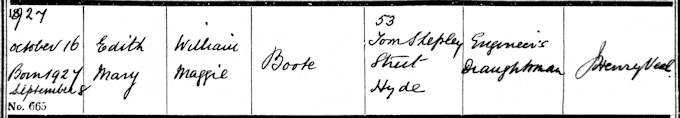 1927
October 16
Born 1927
September 8
No. 665
Edith
Mary
William
Maggie
Boote
53
Tom Shepley
Street
Hyde
Engineer's
Draughtsman
J Henry Veal